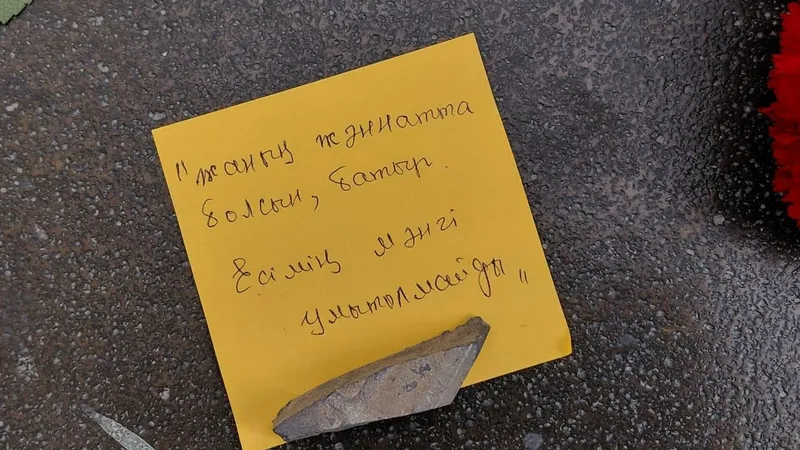 "жаның жәннатта
болсын, батыр.
Есімің мәңгі
ұмытылмайды"